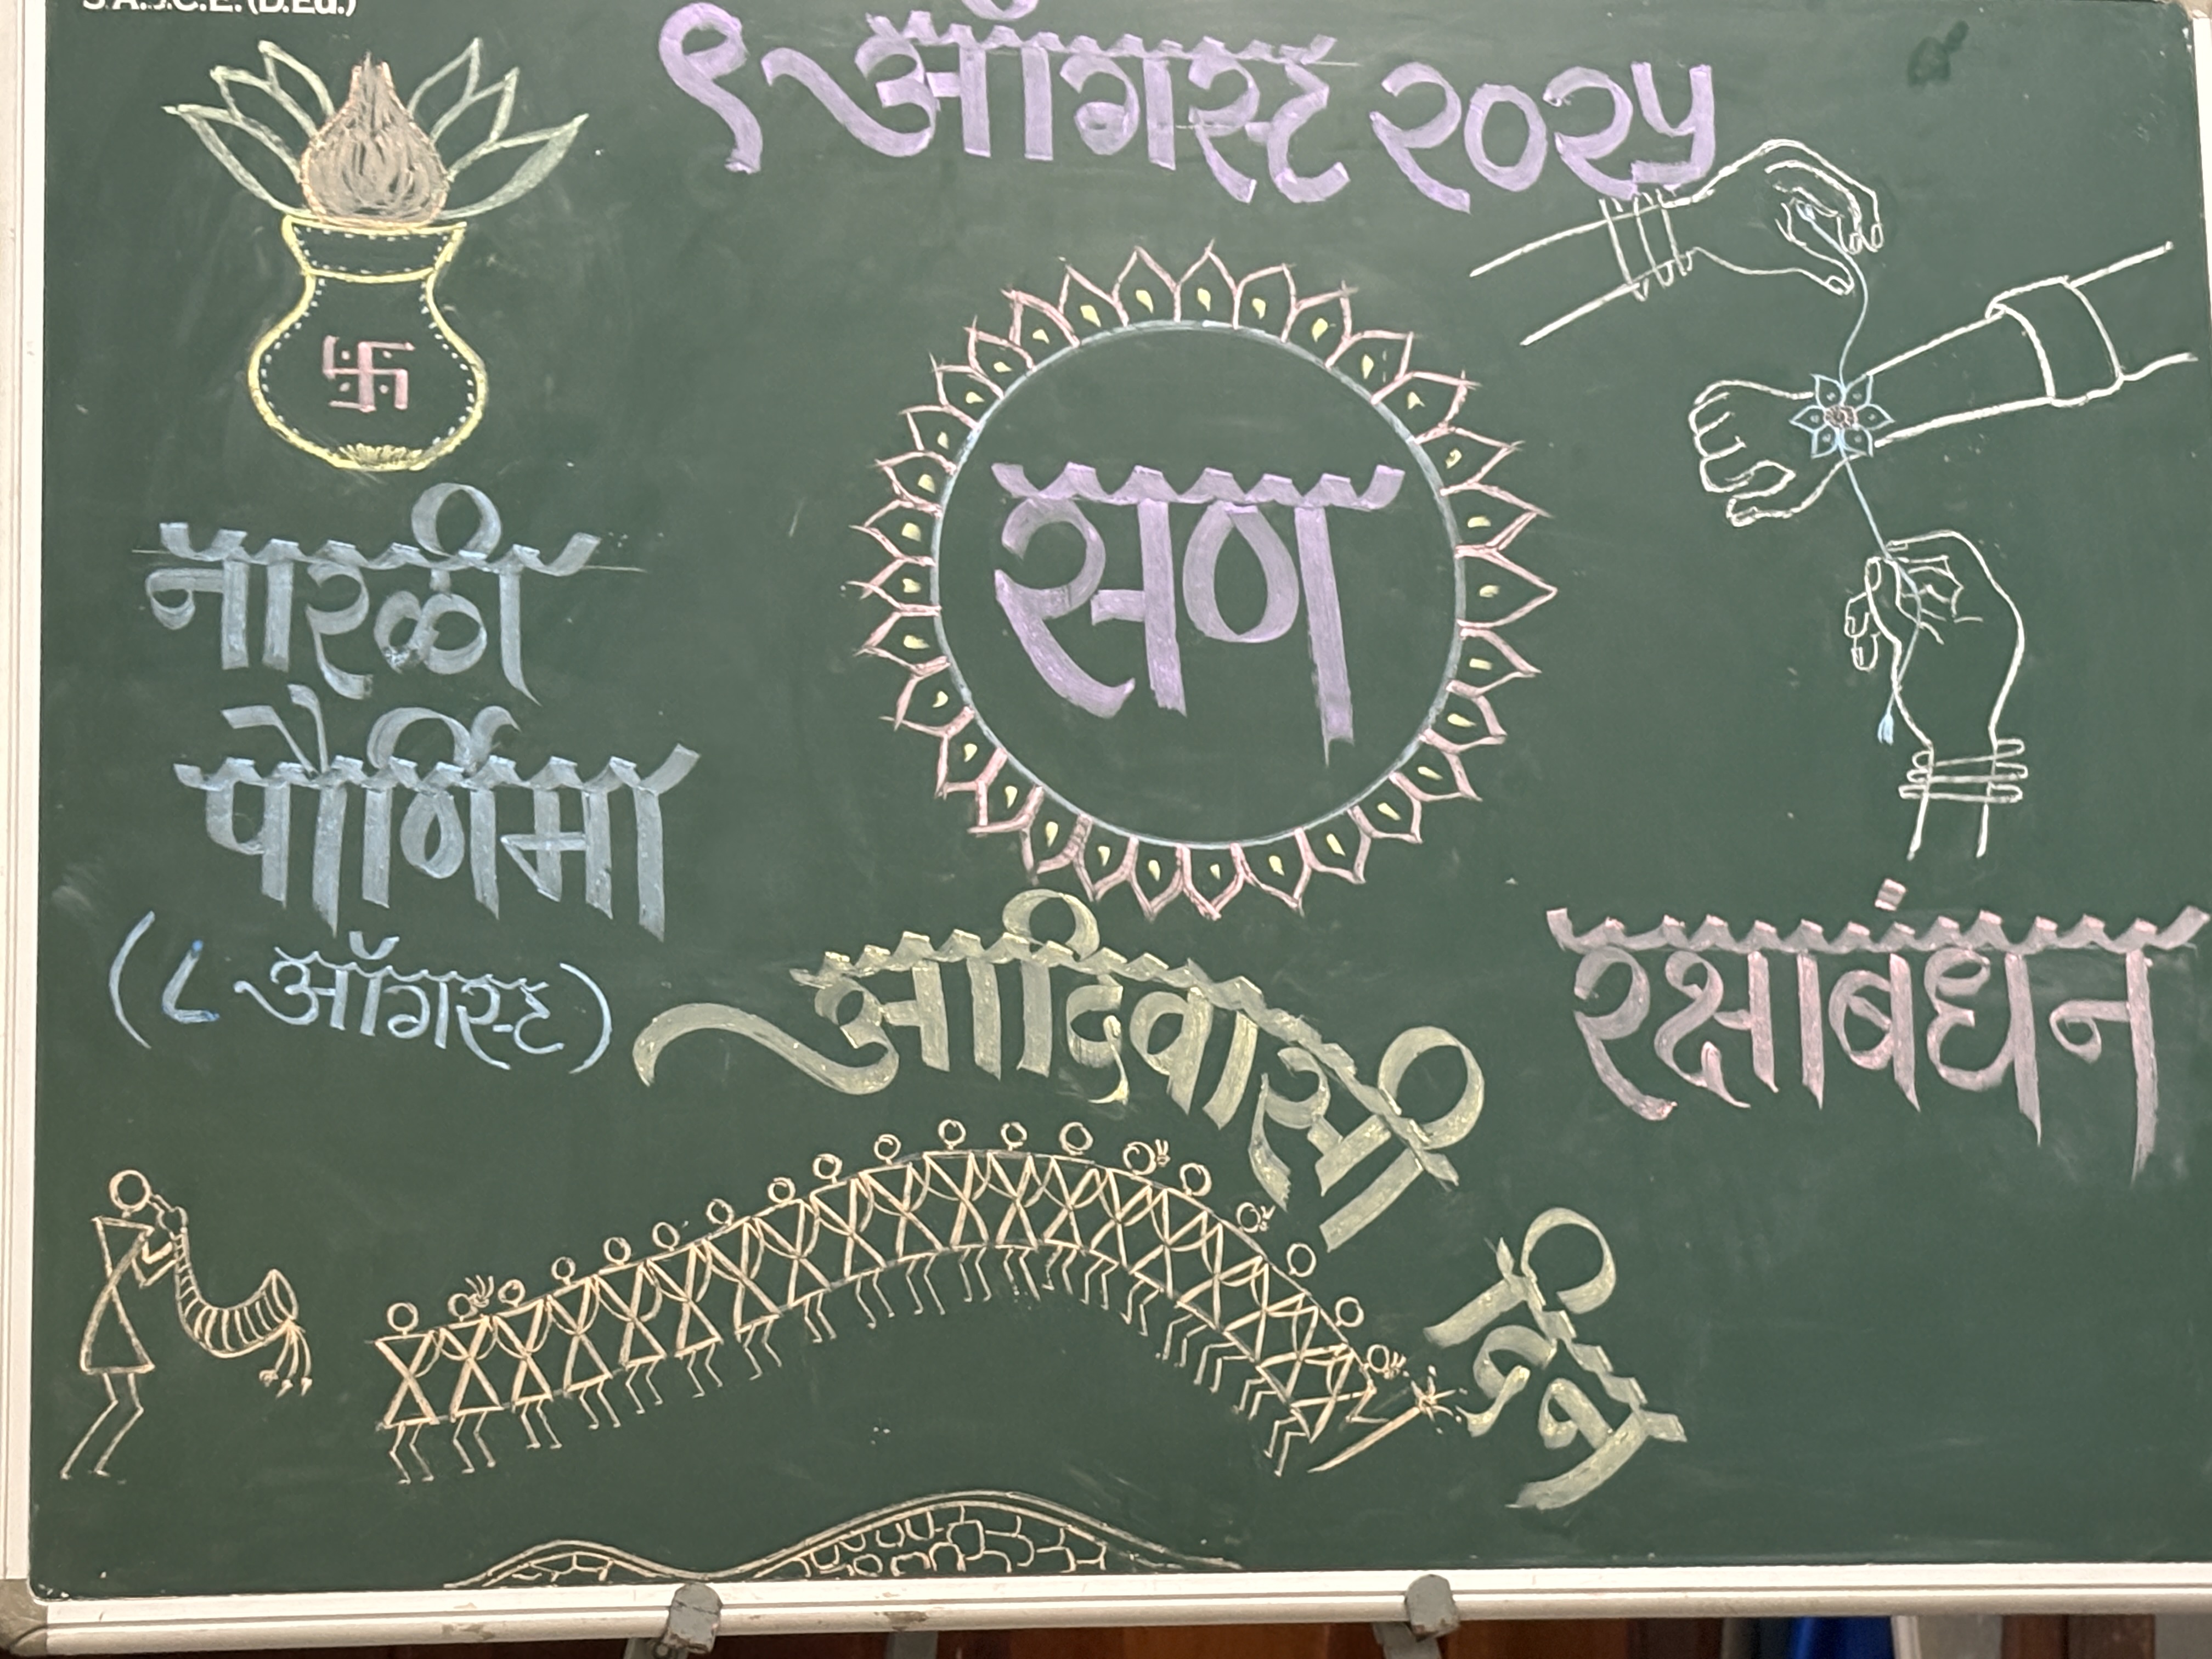 ९ ऑगस्ट २०२५
सण
नारळी
पौर्णिमा
(८ ऑगस्ट)
आदिवासी
दिन
रक्षाबंधन